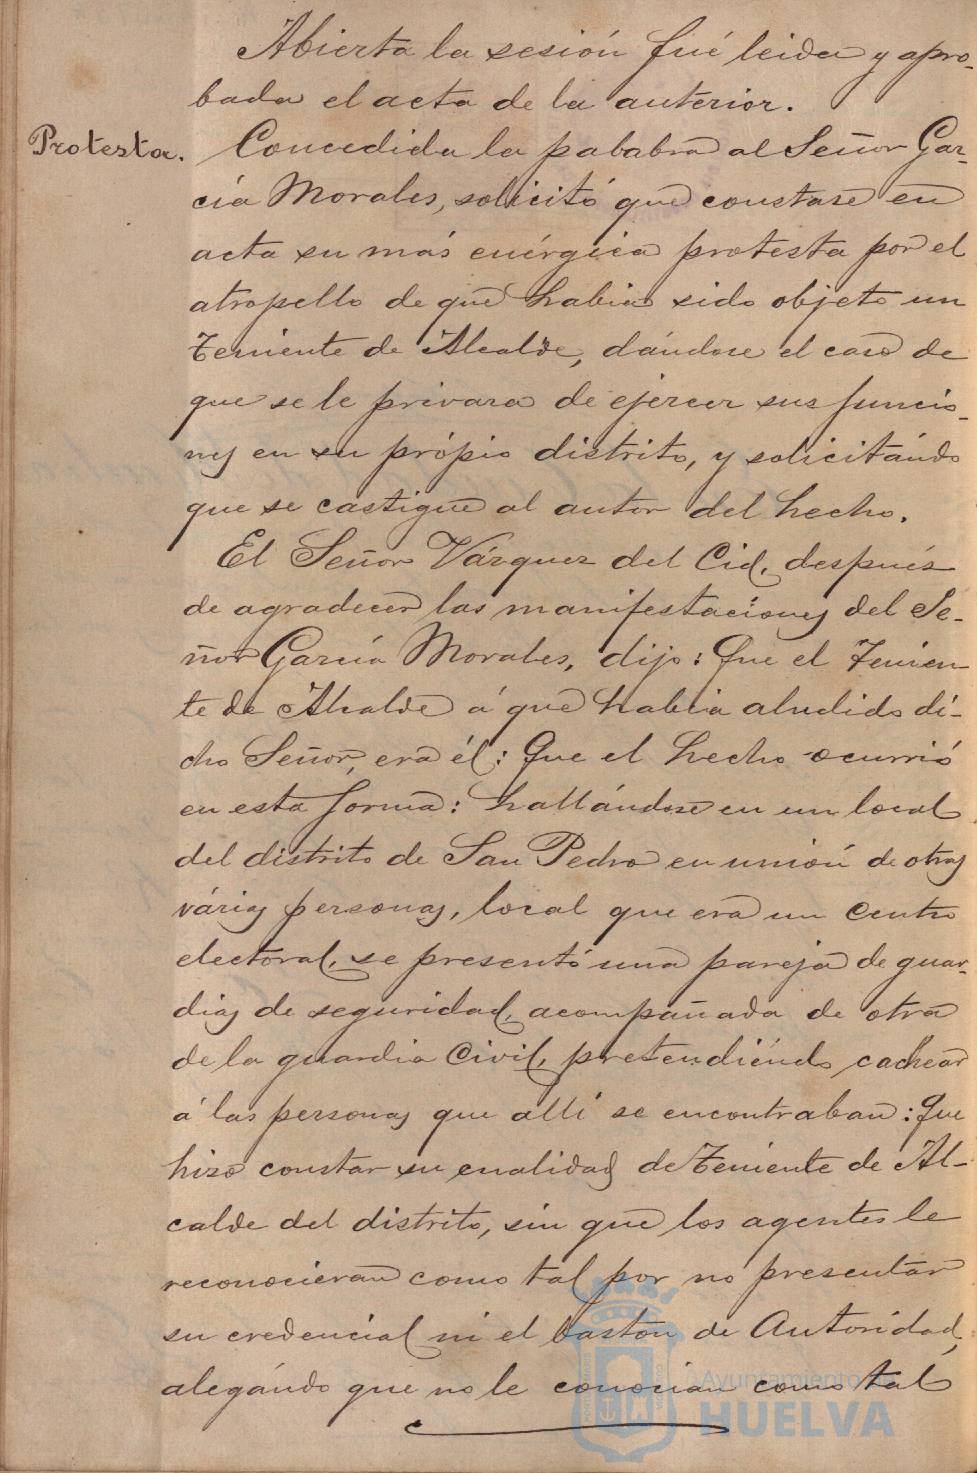 Abierta la sesión fué leida y apro-
bada el acta de la anterior.
Protesta.
Concedida la pababra al Señor Gar-
cía Morales, solicitó que constase en
acta su más enérgica protesta por el
atropello de que habia sido objeto un
Teniente de Alcalde, dándose el caso de
que se le privara de ejercer sus funcio-
nes en su própio distrito, y solicitándo
que se castigue al autor del hecho.
El Señor Vázquez del Cid, después
de agradecer las manifestaciones del Se-
ñor García Morales, dijo: Que el Tenien-
te de Alcalde á que habia aludido di-
cho Señor, era él: Que el hecho ocurrió
en esta forma: hallándose en un local
del distrito de San Pedro en unión de otras
várias personas, local que era un Centro
electoral, se presentó una pareja de guar-
dias de seguridad, acompañada de otra
de la guardia Civil, pretendiéndo cachear
á las personas que allí se encontraban: Que
hizo constar su cualidad de Teniente de Al-
calde del distrito, sin que los agentes le
reconocieran como tal por no presentar
su credencial ni el bastón de Autoridad,
alegándo que no le conocian como tal
Ayuntamiento de
HUELVA